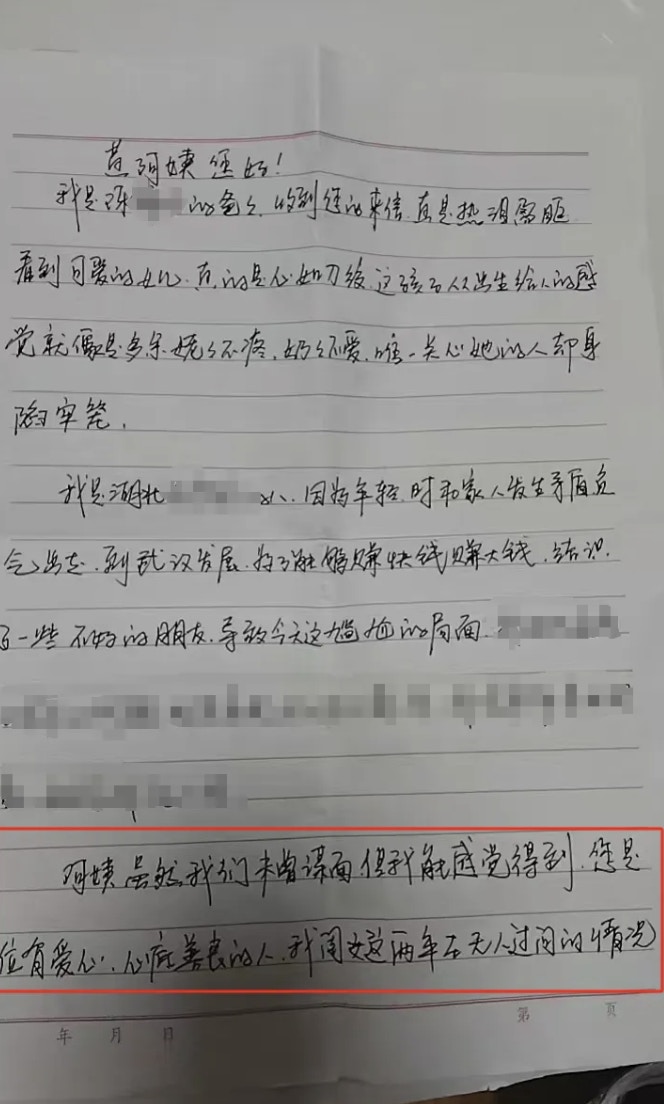 黄阿姨您好!
我是陈 的爸爸,收到您的来信真是热泪盈眶
看到可爱的女儿,真的是心如刀绞,这孩子从出生给人的感
觉就像是多余,姥姥不疼,奶奶不爱,唯一关心她的人却身
陷牢笼,
我是湖北 人,因为年轻时和家人发生矛盾负
气出走,到武汉发展,为了能够赚快钱赚大钱,结识
了一些不好的朋友,导致今天这尴尬的局面
阿姨虽然我们未曾谋面但我能感觉得到,您是
位有爱心,心底善良的人,我闺女这两年在无人过问的情况
年 月 日
第 页